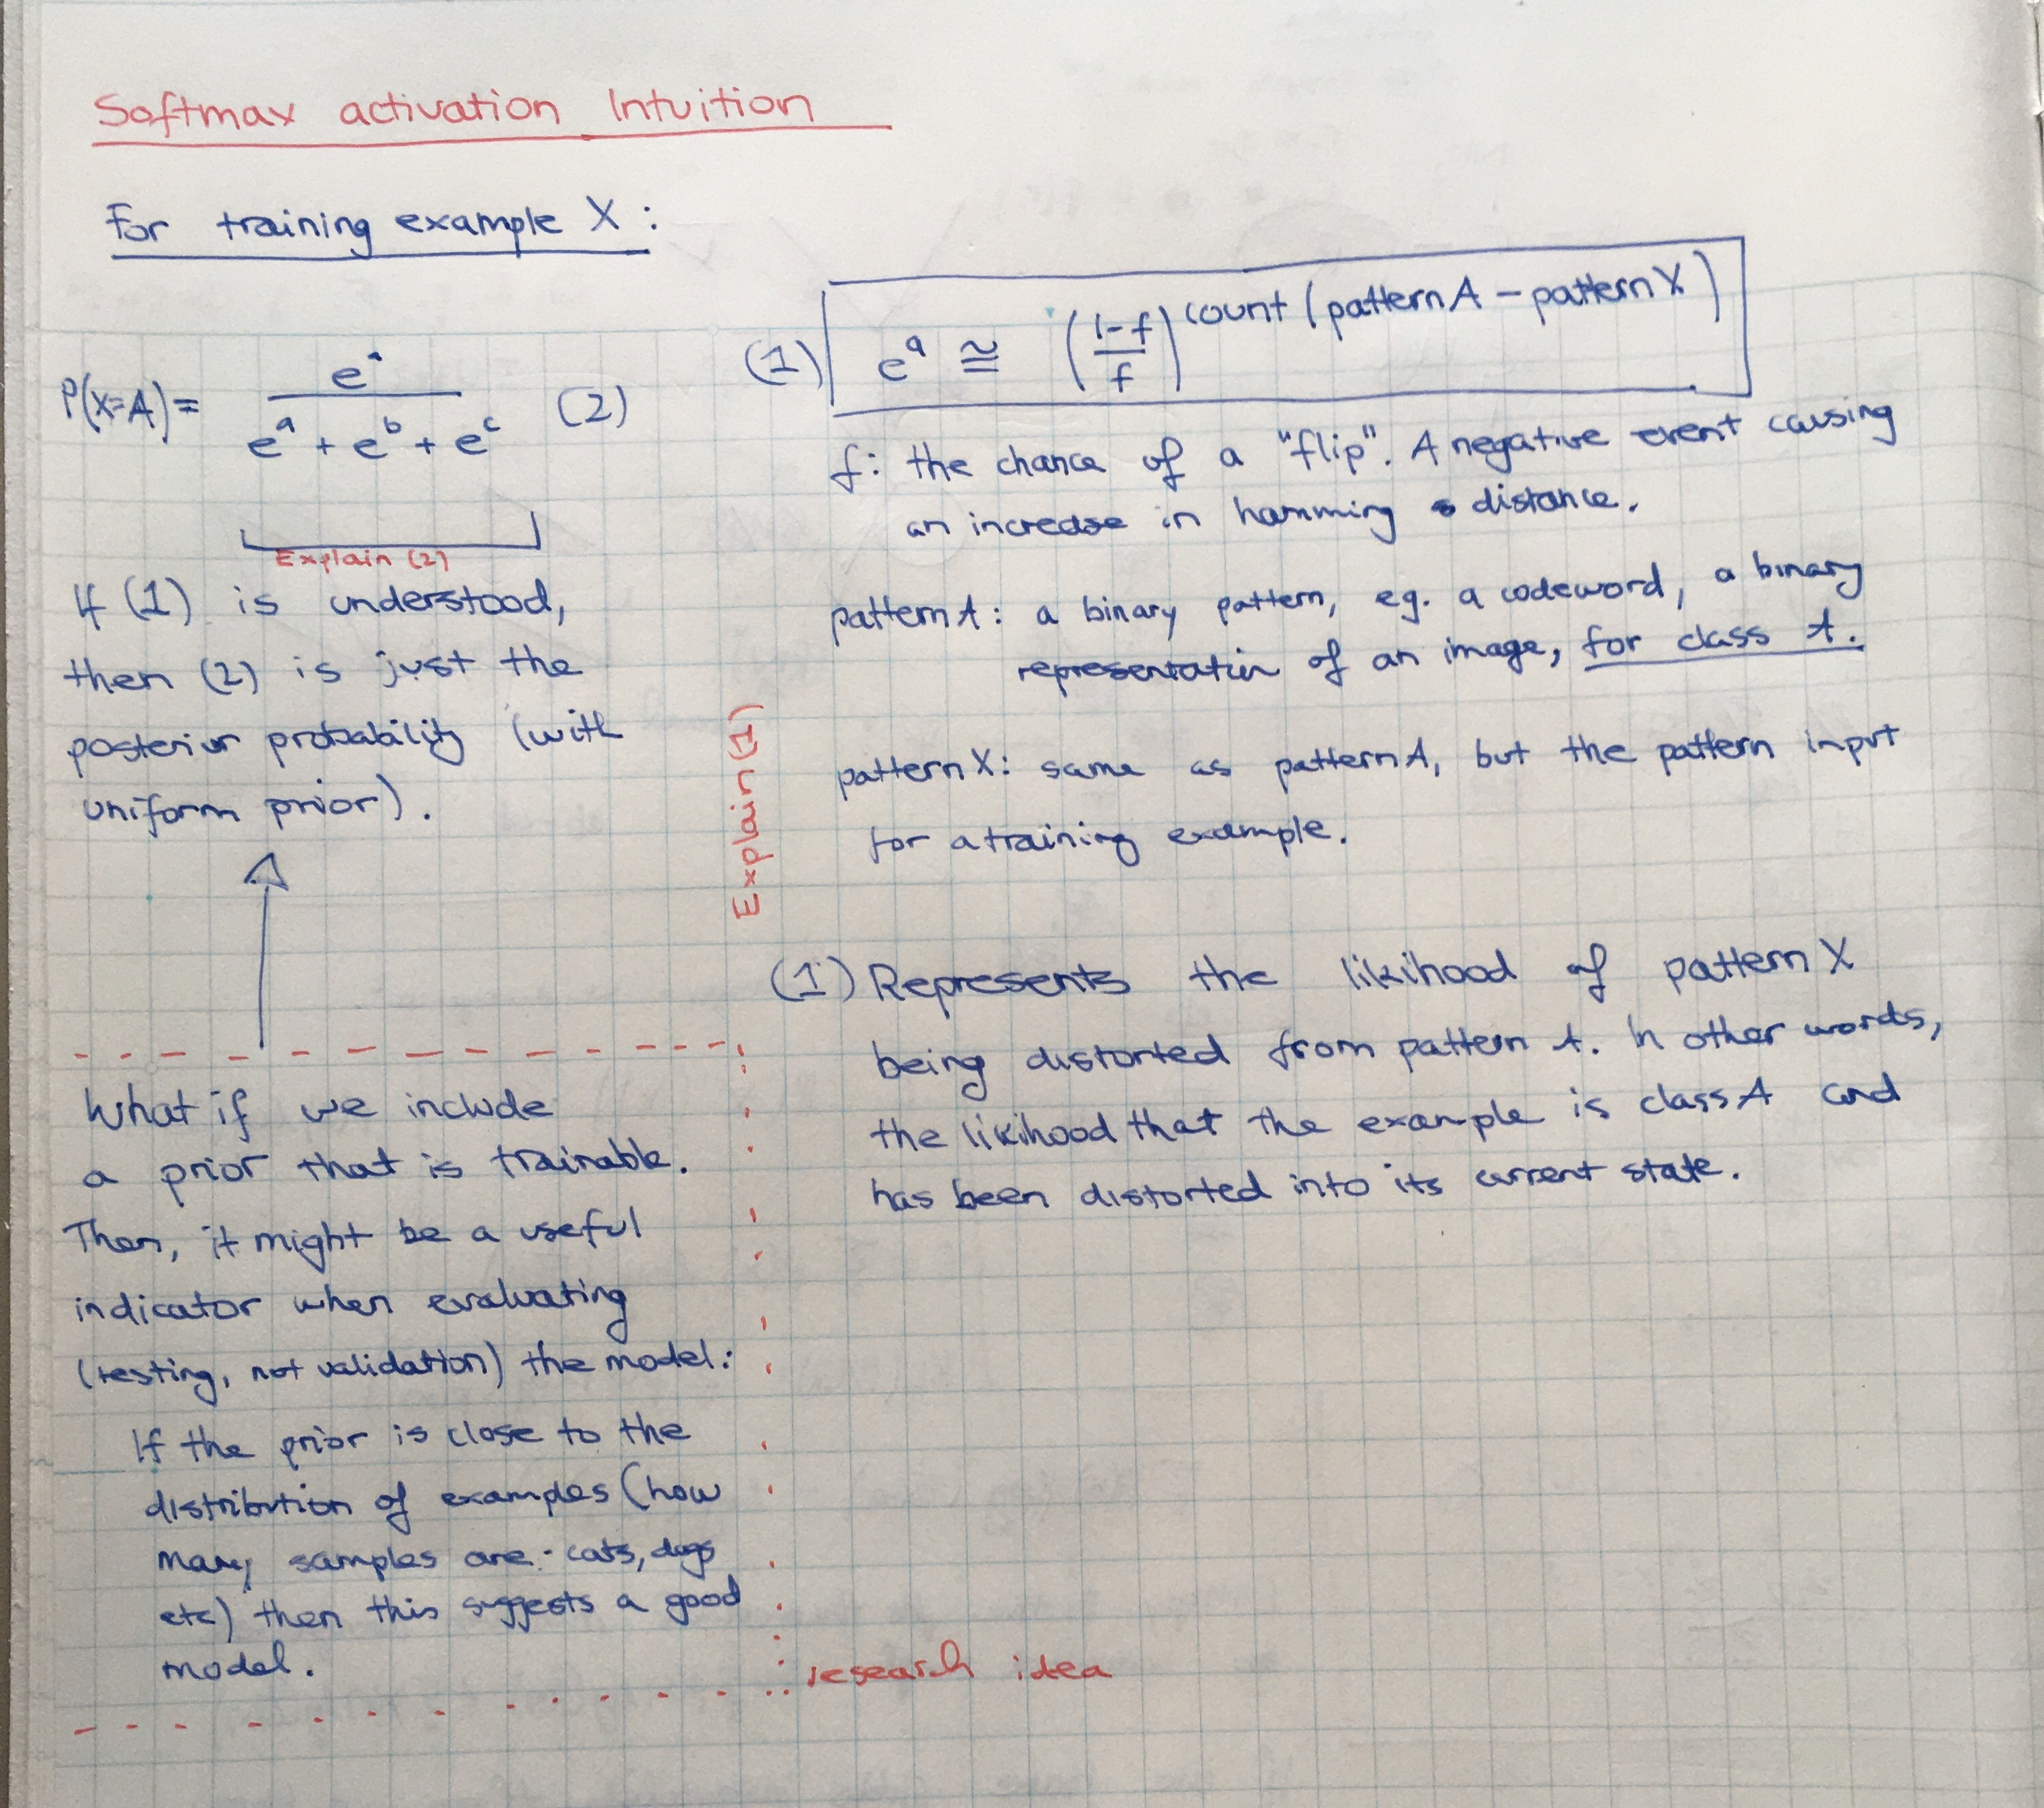 Softmax activation Intuition
For training example X :
P(X=A) = e^a / (e^a + e^b + e^c) (2)
Explain (2)
If (1) is understood,
then (2) is just the
posterior probability (with
uniform prior).
What if we include
a prior that is trainable.
Then, it might be a useful
indicator when evaluating
(testing, not validation) the model:
If the prior is close to the
distribution of examples (how
many samples are cats, dogs
etc) then this suggests a good
model.
research idea
(1) e^a ≅ ((1-f)/f)^count(pattern A - pattern X)
f: the chance of a "flip". A negative event causing
an increase in hamming distance.
pattern A: a binary pattern, eg. a codeword, a binary
representatin of an image, for class A.
pattern X: same as pattern A, but the pattern input
for a training example.
Explain (1)
(1) Represents the likihood of pattern X
being distorted from pattern A. In other words,
the likihood that the example is class A and
has been distorted into its current state.